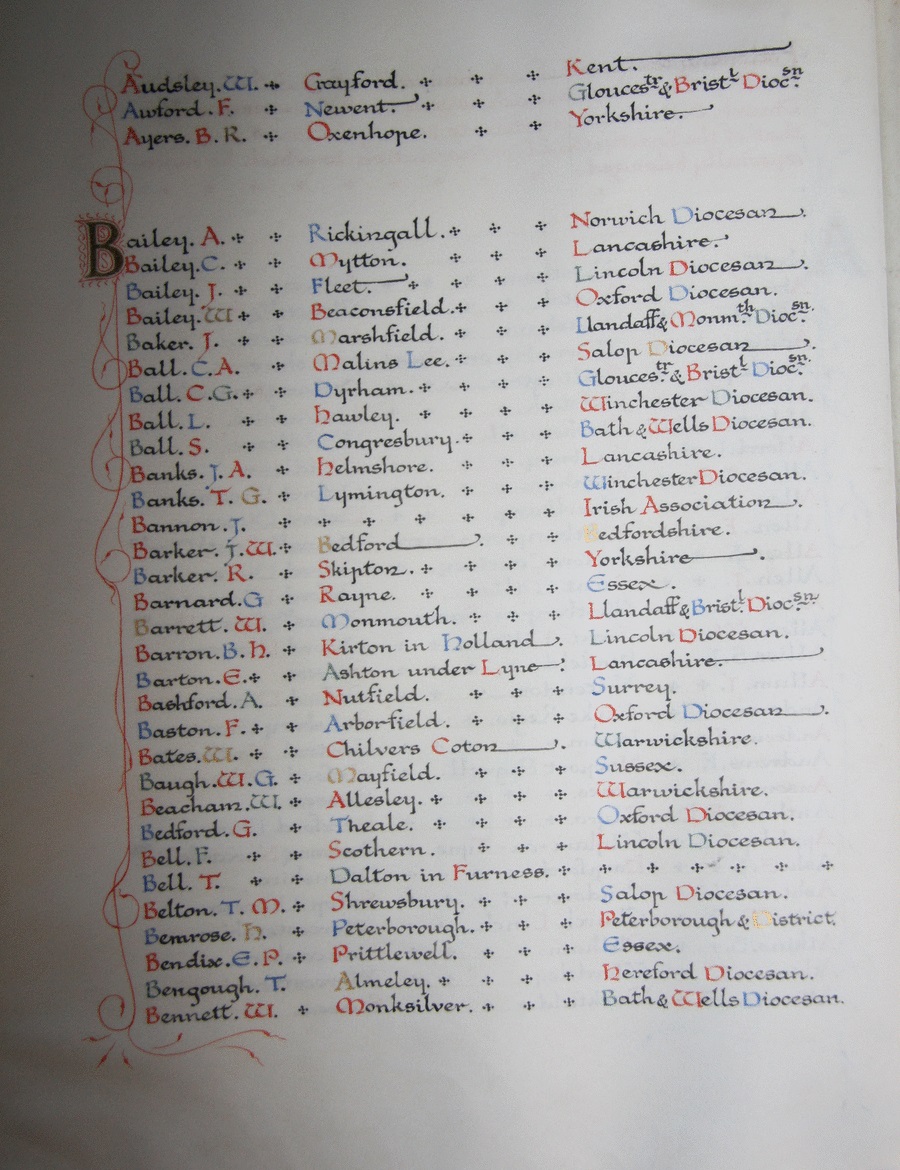 Audsley. W. Crayford. Kent.
Awford. F. Newent. Gloucestr. & Bristl. Diocsn.
Ayers. B. R. Oxenhope. Yorkshire.
Bailey. A. Rickingall. Norwich Diocesan.
Bailey. C. Mytton. Lancashire.
Bailey. J. Fleet. Lincoln Diocesan.
Bailey. W. Beaconsfield. Oxford Diocesan.
Baker. J. Marshfield. Llandaff & Monmth. Diocsn.
Ball. C. A. Malins Lee. Salop Diocesan.
Ball. C. G. Dyrham. Gloucestr. & Bristl. Diocsn.
Ball. L. Hawley. Winchester Diocesan.
Ball. S. Congresbury. Bath & Wells Diocesan.
Banks. J. A. Helmshore. Lancashire.
Banks. T. G. Lymington. Winchester Diocesan.
Bannon. J. Irish Association.
Barker. J. W. Bedford. Bedfordshire.
Barker. R. Skipton. Yorkshire.
Barnard. G Rayne. Essex.
Barrett. W. Monmouth. Llandaff & Bristl. Diocsn.
Barron. B. H. Kirton in Holland. Lincoln Diocesan.
Barton. E. Ashton under Lyne. Lancashire.
Bashford. A. Nutfield. Surrey.
Baston. F. Arborfield. Oxford Diocesan.
Bates. W. Chilvers Coton. Warwickshire.
Baugh. W. G. Mayfield. Sussex.
Beacham. W. Allesley. Warwickshire.
Bedford. G. Theale. Oxford Diocesan.
Bell. F. Scothern. Lincoln Diocesan.
Bell. T. Dalton in Furness.
Belton. T. M. Shrewsbury. Salop Diocesan.
Bemrose. H. Peterborough. Peterborough & District.
Bendix. E. P. Prittlewell. Essex.
Bengough. T. Almeley. Hereford Diocesan.
Bennett. W. Monksilver. Bath & Wells Diocesan.